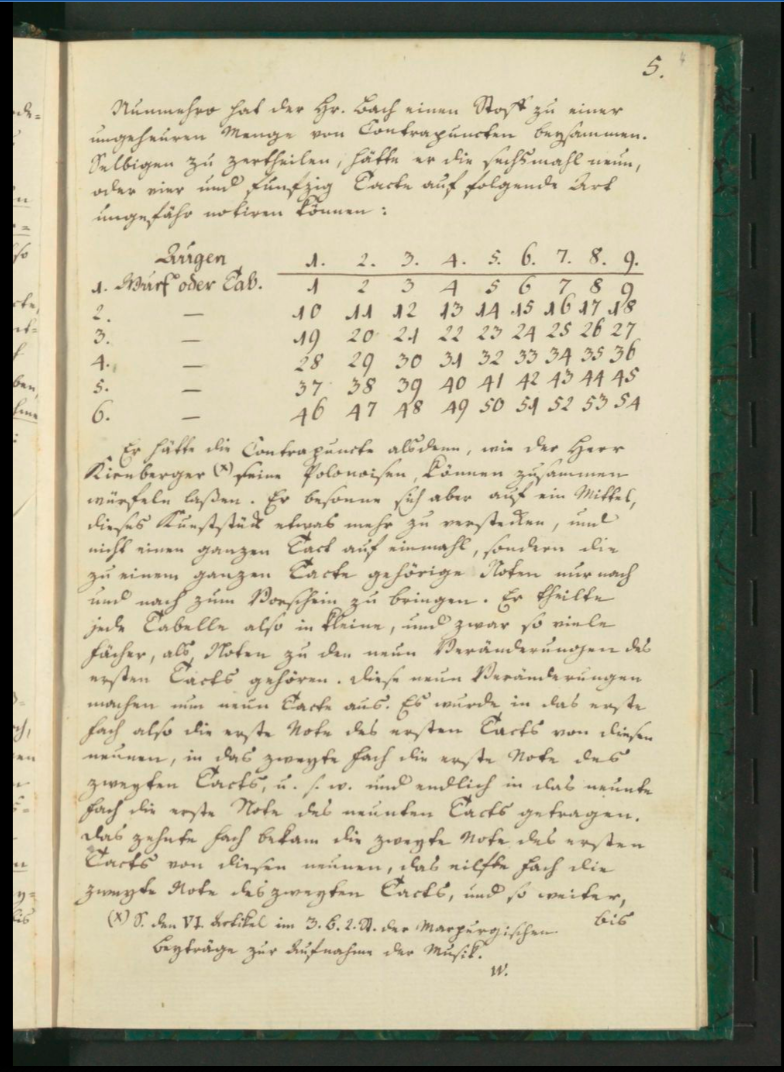 5.
Nunmehro hat der Hr. Bach einen Stoff zu einer
ungeheuren Menge von Contrapuncten beysammen.
Selbigen zu zertheilen, hätte er die sechsmahl neun,
oder vier und funfzig Tacte auf folgende Art
ungefähr notiren können:
Augen 1. 2. 3. 4. 5. 6. 7. 8. 9.
1. Wurf oder Tab. 1 2 3 4 5 6 7 8 9
2. — 10 11 12 13 14 15 16 17 18
3. — 19 20 21 22 23 24 25 26 27
4. — 28 29 30 31 32 33 34 35 36
5. — 37 38 39 40 41 42 43 44 45
6. — 46 47 48 49 50 51 52 53 54
Er hätte die Contrapuncte alsdenn, wie der Herr
Kirnberger (x) seine Polonoisen, können zusammen
würfeln laßen. Er besonne sich aber auf ein Mittel,
dieses Kunststück etwas mehr zu verstecken, und
nicht einen ganzen Tact auf einmahl, sondern die
zu einem ganzen Tacte gehörige Noten nur nach
und nach zum Vorschein zu bringen. Er theilte
jede Tabelle also in kleine, und zwar so viele
Fächer, als Noten zu den neun Veränderungen des
ersten Tacts gehören. Diese neun Veränderungen
machen nun neun Tacte aus. Es wurde in das erste
Fach also die erste Note des ersten Tacts von diesen
neunen, in das zweyte Fach die erste Note des
zweyten Tacts, u. s. w. und endlich in das neunte
Fach die erste Note des neunten Tacts getragen.
Das zehnte Fach bekam die zweyte Note des ersten
Tacts von diesen neunen, das eilfte Fach die
zweyte Note des zweyten Tacts, und so weiter,
bis
(x) S. den VI. Artikel im 3. B. 2. St. der Marpurgischen
Beyträge zur Aufnahme der Musik.
W.